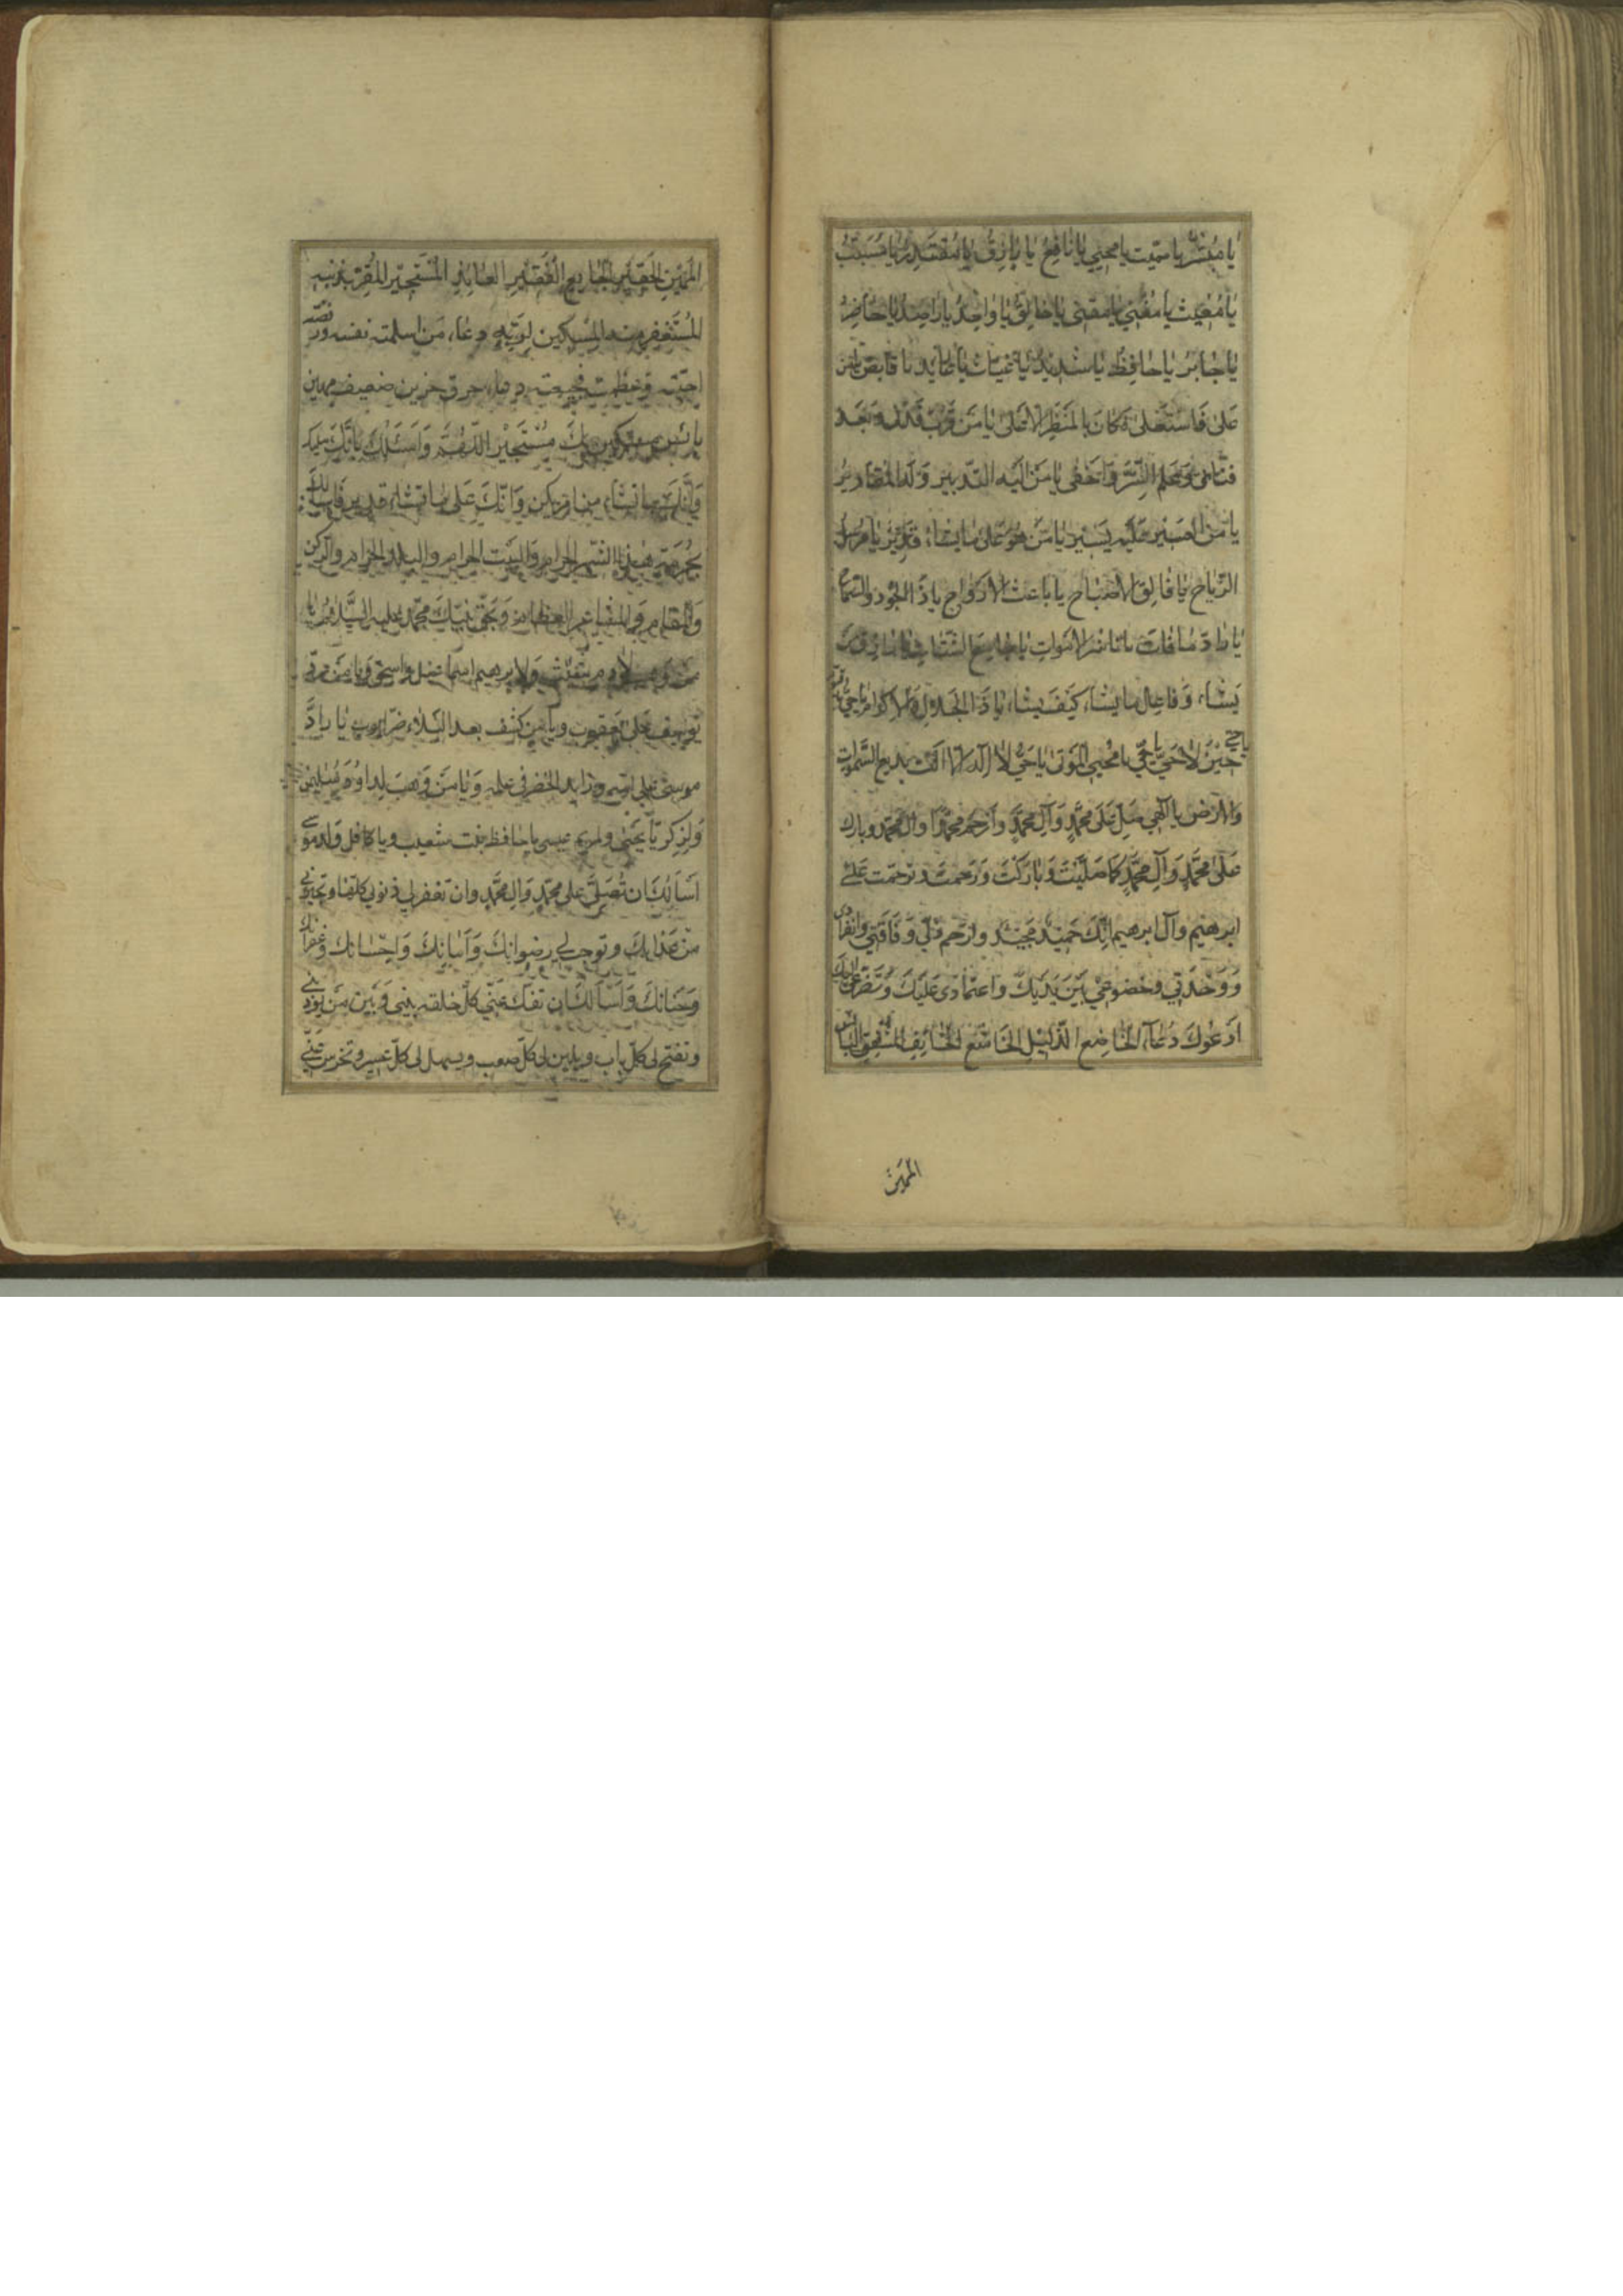 يا مُبَشِّرُ يا مميت يا محيي يا نافع يا رازق يا مقتدر يا مسبب
يا مغيث يا مغني يا مقني يا خالق يا واحد يا راصد يا حاضر
يا جابر يا حافظ يا شديد يا غياث يا عايد يا قابض يا من
على فاستعلى فكان بالمنظر الاعلى يا من قرب فدنا و بعد
فنأى وعلم السر واخفى يا من اليه التدبير وله المقادير
يا من العسير عليه يسير يا من هو على ما يشاء قدير يا مرسل
الرياح يا فالق الاصباح يا باعث الارواح يا ذا الجود والسماح
يا راد ما فات يا ناشر الاموات يا جامع الشتات يا رازق من
يشاء وفاعل ما يشاء كيف يشاء يا ذا الجلال والاكرام يا حي يا قيوم
يا حي حين لا حي يا حي يا محيي الموتى يا حي لا اله الا انت بديع السموات
والارض يا الهي صل على محمد وآل محمد وارحم محمدا وآل محمد وبارك
على محمد وآل محمد كما صليت وباركت ورحمت وترحمت على
ابرهيم وآل ابرهيم انك حميد مجيد وارحم ذلي وفاقتي وانفرادي
ووحدتي وخضوعي بين يديك واعتمادي عليك وتضرعي اليك
ادعوك دعاء الخاضع الذليل الخاشع الخائف المشفق البائس
المهين
المهين الحقير الجايع الفقير العائذ المستجير المقر بذنبه
المستغفر منه المستكين لربه دعاء من اسلمته نفسه ورفضته
احبته وعظمت فجيعته دعاء حرق حزين ضعيف مهين
بائس مستكين بك مستجير اللهم واسئلك بانك مليك
وانك ما تشاء من امر يكن وانك على ما تشاء قدير فاسألك
بحرمة هذا الشهر الحرام والبيت الحرام والبلد الحرام والركن
والمقام والمشاعر العظام وبحق نبيك محمد عليه السلام يا
من وهب لادم شيث ولابرهيم اسماعيل واسحق ويا من رد
يوسف على يعقوب ويا من كشف بعد البلاء ضر ايوب يا راد
موسى على امه وزايد الخضر في علمه ويا من وهب لداود سليمن
ولزكريا يحيى ولمريم عيسى يا حافظ بنت شعيب ويا كافل ولد موسى
اسألك ان تصلي على محمد وآل محمد وان تغفر لي ذنوبي كلها وتجيرني
من عذابك وتوجب لي رضوانك وامانك واحسانك وغفرانك
وجنانك واسألك ان تفك عني كل حلقة بيني وبين من يؤذيني
وتفتح لي كل باب ويلين لي كل صعب ويسهل لي كل عسير وتخرس عني